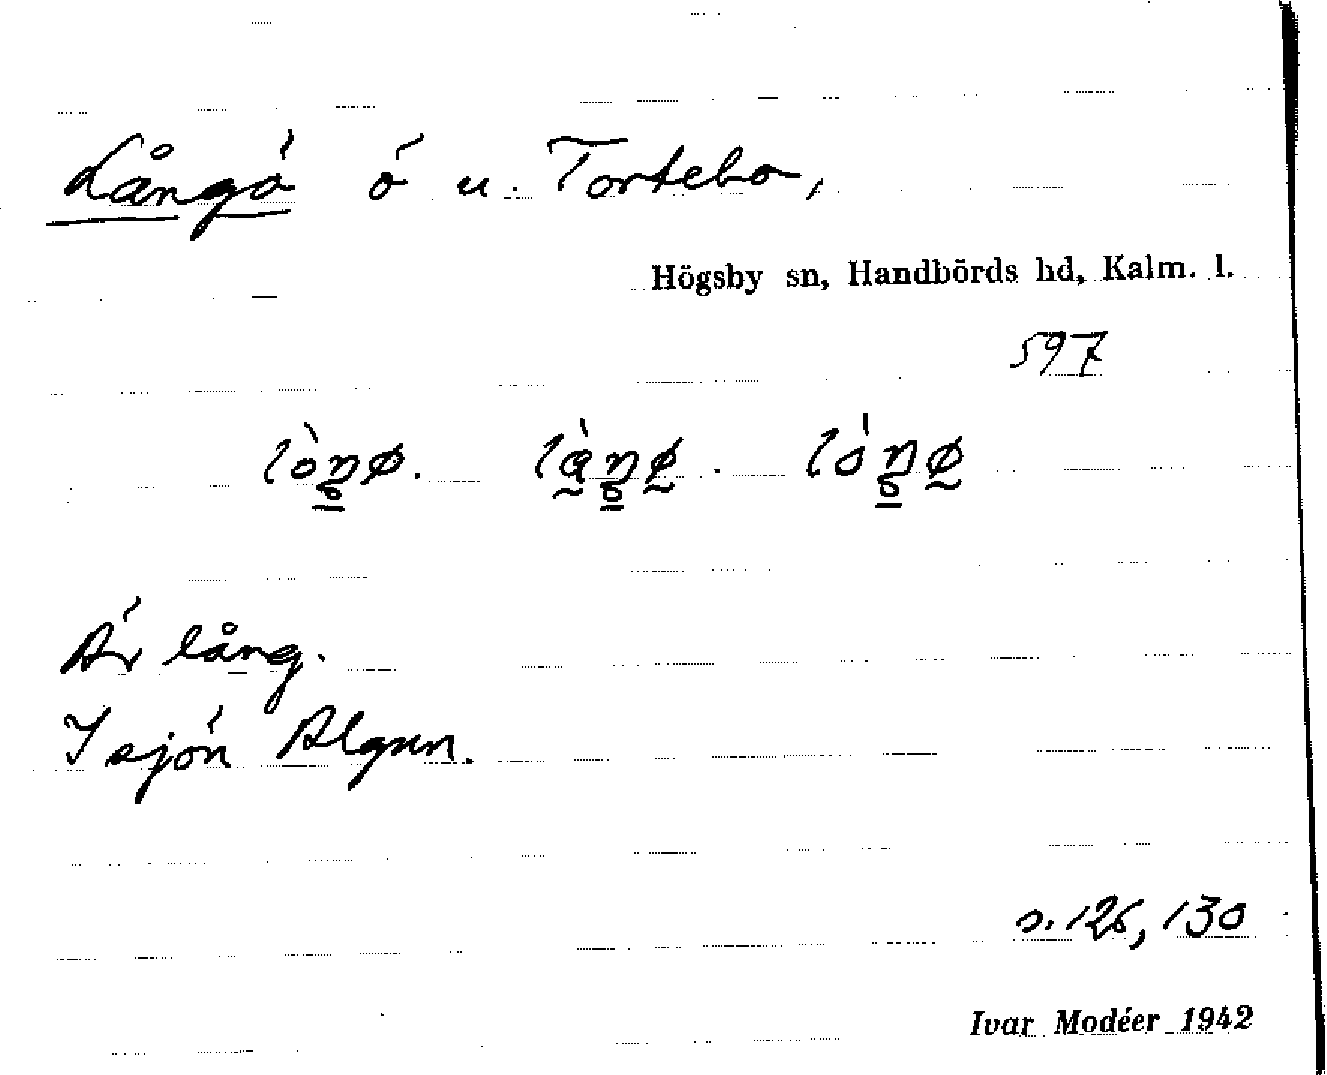 Långö ö u. Tortebo,
Högsby sn, Handbörds hd, Kalm. l.
597
Är lång.
I sjön Algun.
s. 126, 130
Ivar Modéer 1942